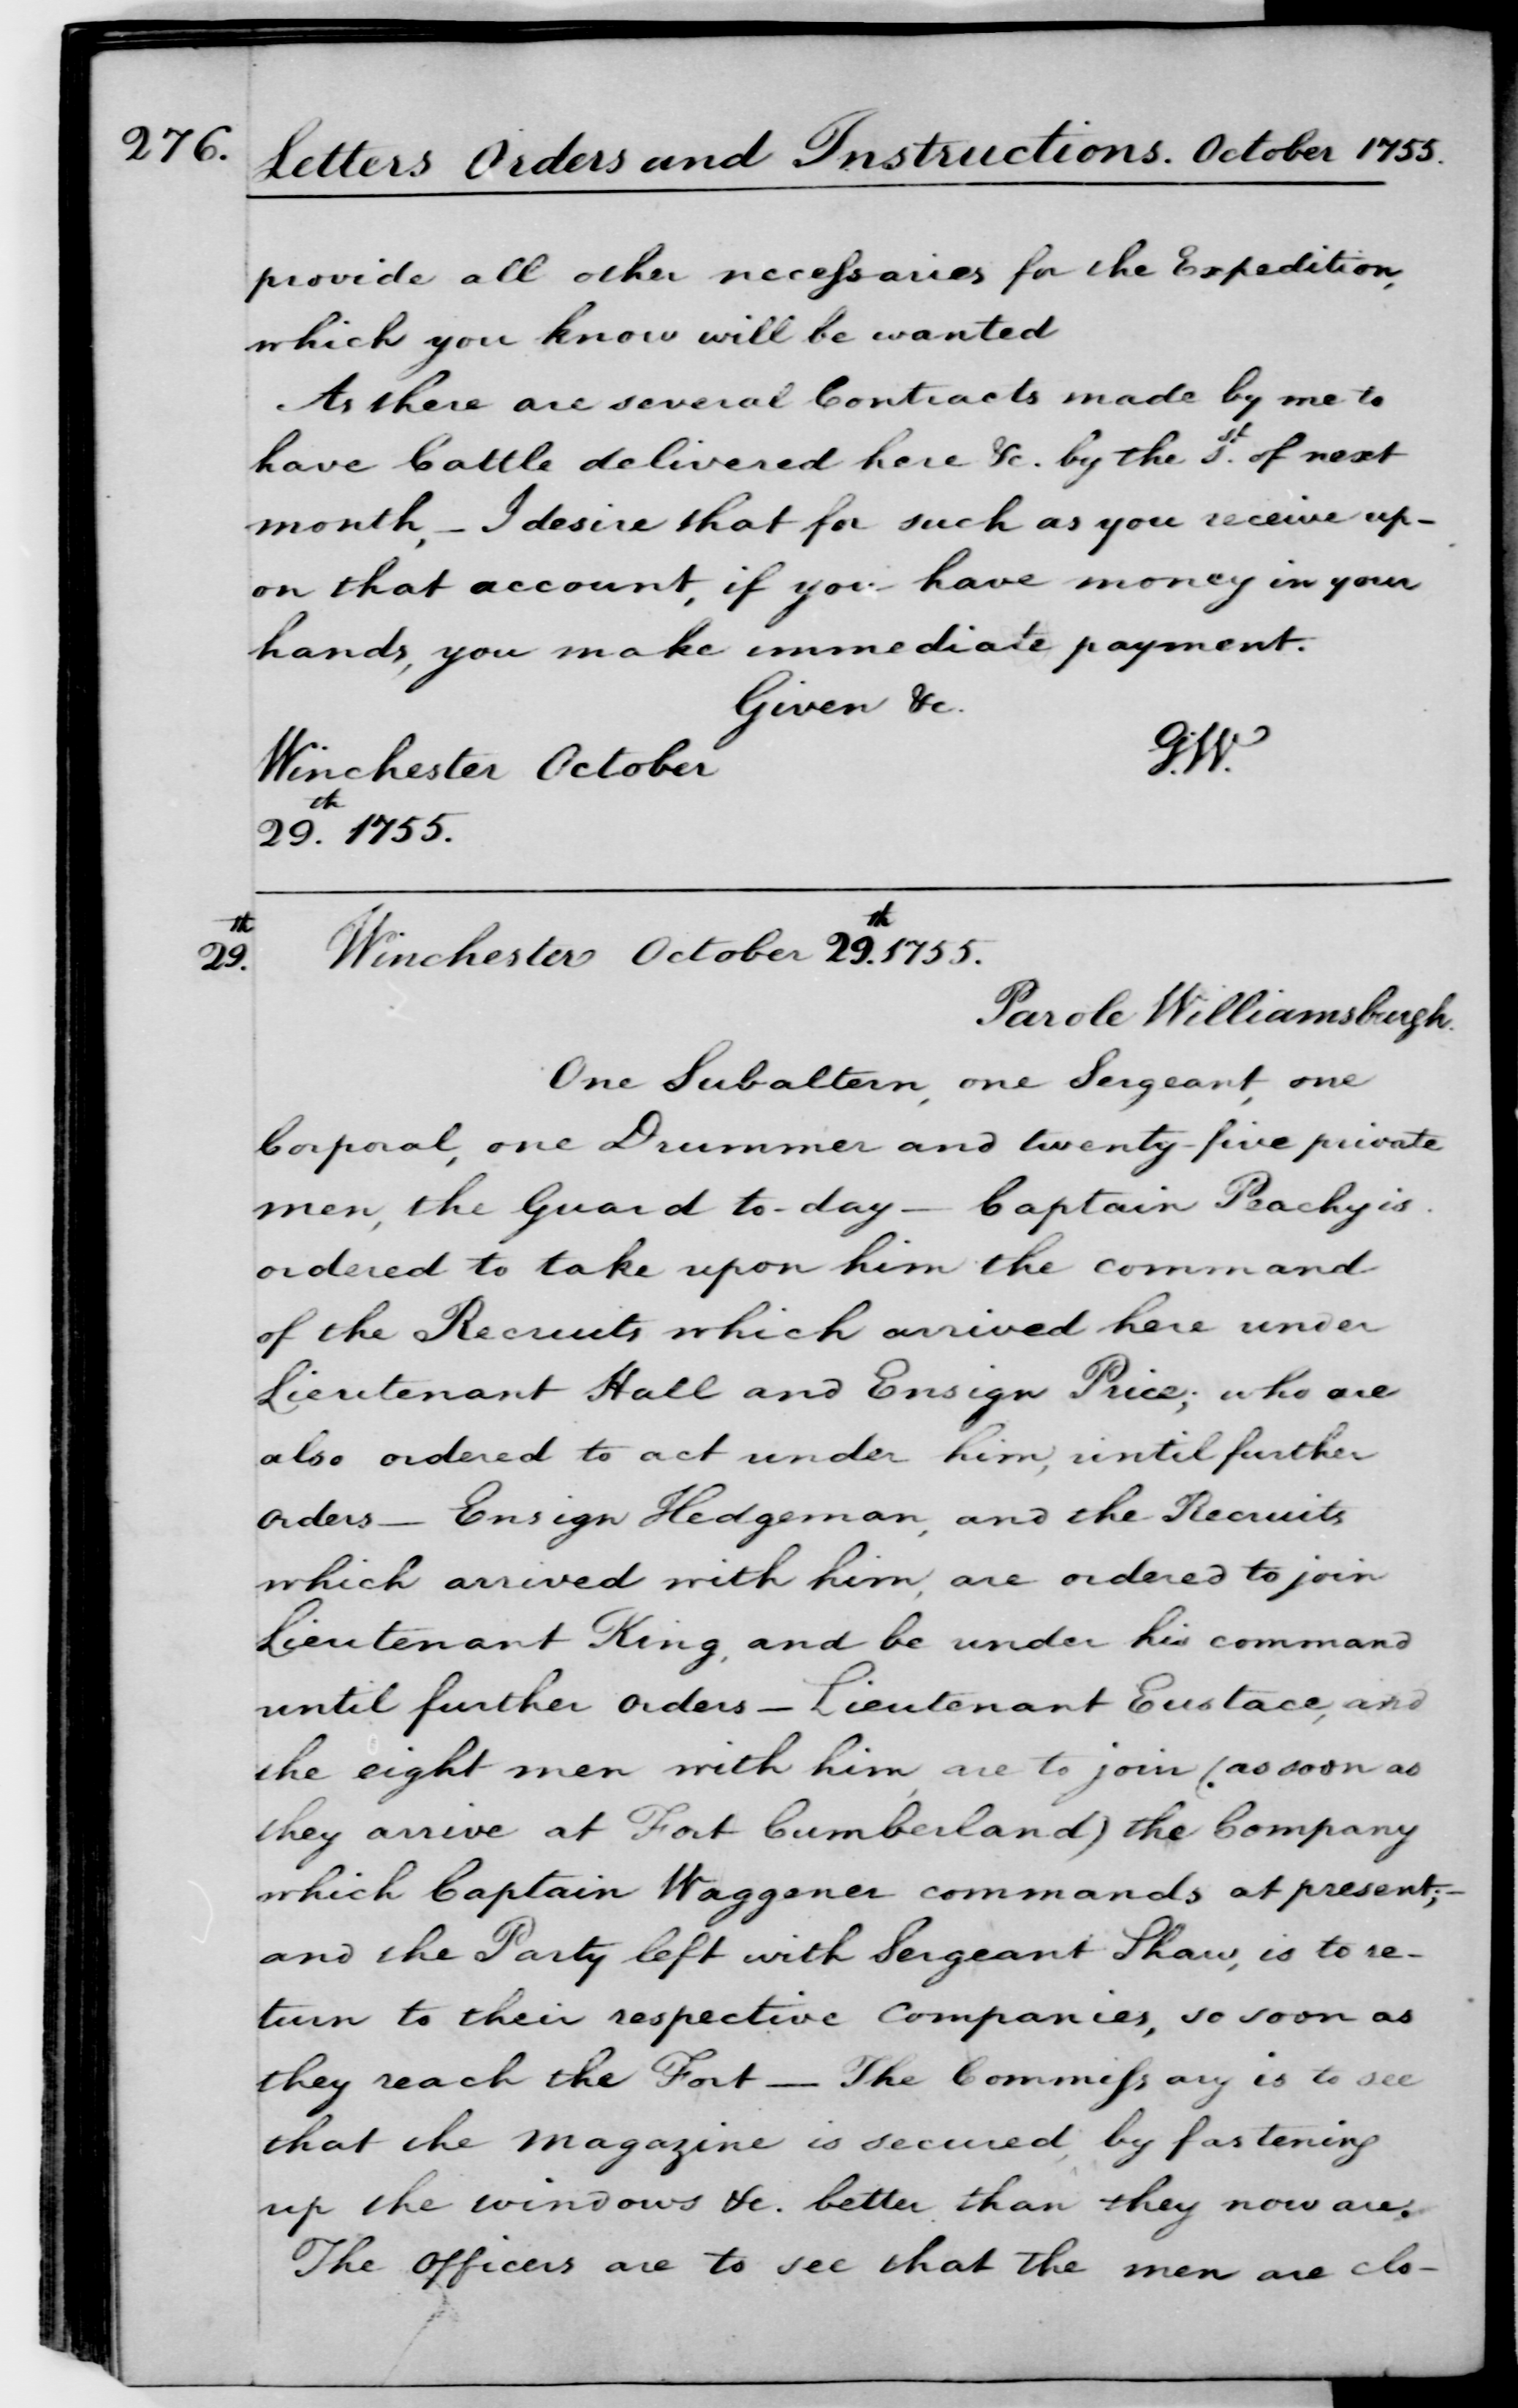 276.
Letters Orders and Instructions. October 1755.
provide all other necessaries for the Expedition,
which you know will be wanted
As there are several Contracts made by me to
have Cattle delivered here &c. by the 1st. of next
month,- I desire that for such as you receive up-
on that account, if you have money in your
hands, you make immediate payment.
Given &c.
G.W.
Winchester October
29th. 1755.
29th.
Winchester October 29th. 1755.
Parole Williamsburgh.
One Subaltern, one Sergeant, one
Corporal, one Drummer and twenty-five private
men, the Guard to-day — Captain Peachy is
ordered to take upon him the command
of the Recruits which arrived here under
Lieutenant Hall and Ensign Price; who are
also ordered to act under him, until further
orders — Ensign Hedgeman, and the Recruits
which arrived with him, are ordered to join
Lieutenant King, and be under his command
until further orders — Lieutenant Eustace, and
the eight men with him, are to join (as soon as
they arrive at Fort Cumberland) the Company
which Captain Waggener commands at present;-
and the Party left with Sergeant Shaw, is to re-
turn to their respective Companies, so soon as
they reach the Fort — The Commissary is to see
that the magazine is secured, by fastening
up the windows &c. better than they now are.
The Officers are to see that the men are clo-